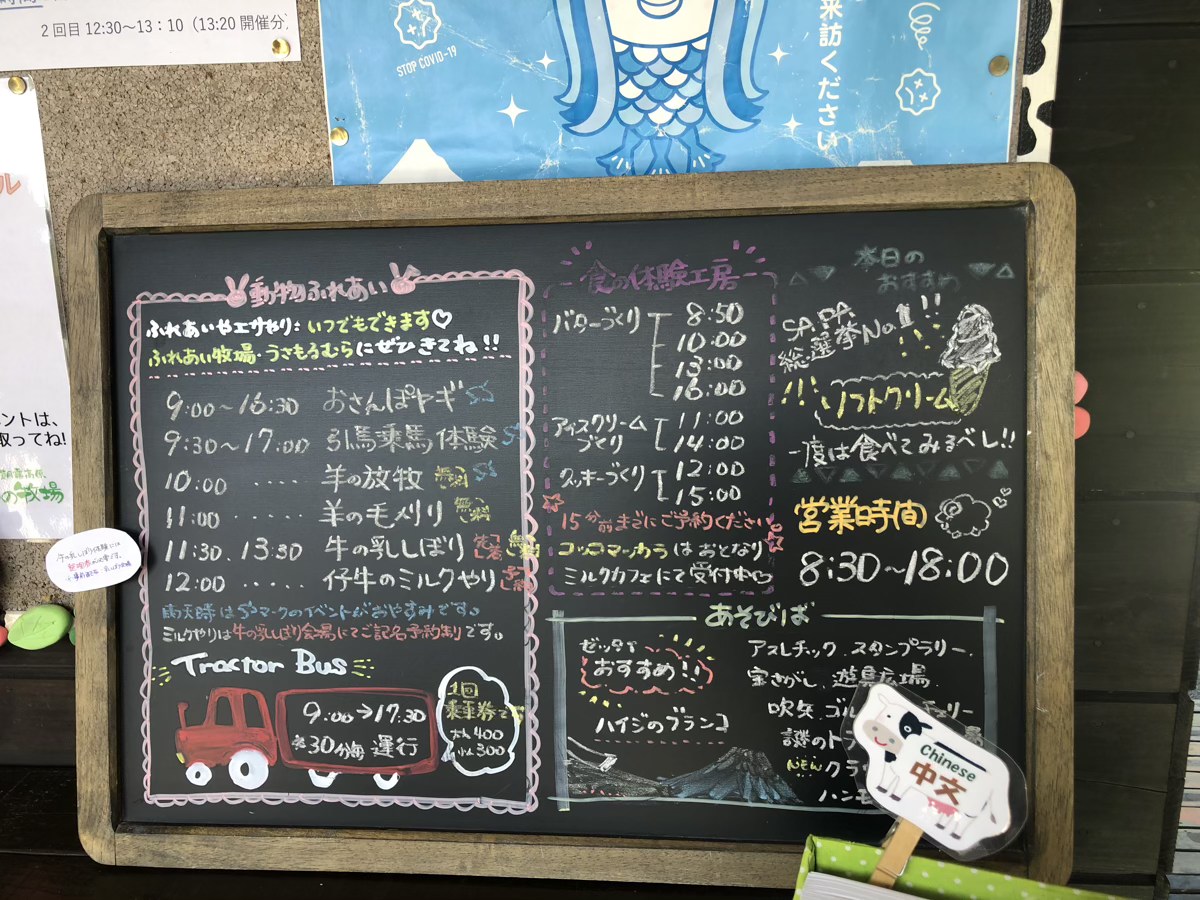 2回目 12:30～13:10 (13:20 開催分
STOP COVID-19
来訪ください
ル
ントは、
取ってね!
の牧場
動物ふれあい
ふれあいやエサやり：いつでもできます♡
ふれあい牧場・うさもるむらにぜひきてね!!
9:00～16:30 おさんぽヤギ
9:30～17:00 引馬乗馬体験
10:00 ‥‥ 羊の放牧 無料
11:00 ‥‥ 羊の毛刈り 無料
11:30、13:30 牛の乳しぼり 先着 無料
12:00 ‥‥ 仔牛のミルクやり
雨天時は マークのイベントがおやすみです。
ミルクやりは牛の乳しぼり会場にてご記名予約制です。
Tractor Bus
9:00→17:30
約30分毎 運行
1回
乗車券
大人400
小人300
食の体験工房
バターづくり
8:50
10:00
13:00
16:00
アイスクリームづくり
11:00
14:00
クッキーづくり
12:00
15:00
15分前までにご予約ください
は おとなり
ミルクカフェにて受付中
本日の
おすすめ
SA.PA
総選挙No.1!!
ソフトクリーム
一度は食べてみるべし!!
営業時間
8:30～18:00
あそびば
ゼッタイ
おすすめ!!
ハイジのブランコ
アスレチック、スタンプラリー、
宝さがし、遊具広場、
吹矢、ゴル
チェリー
謎のト
NEW クラ
ハンモ
Chinese
中文